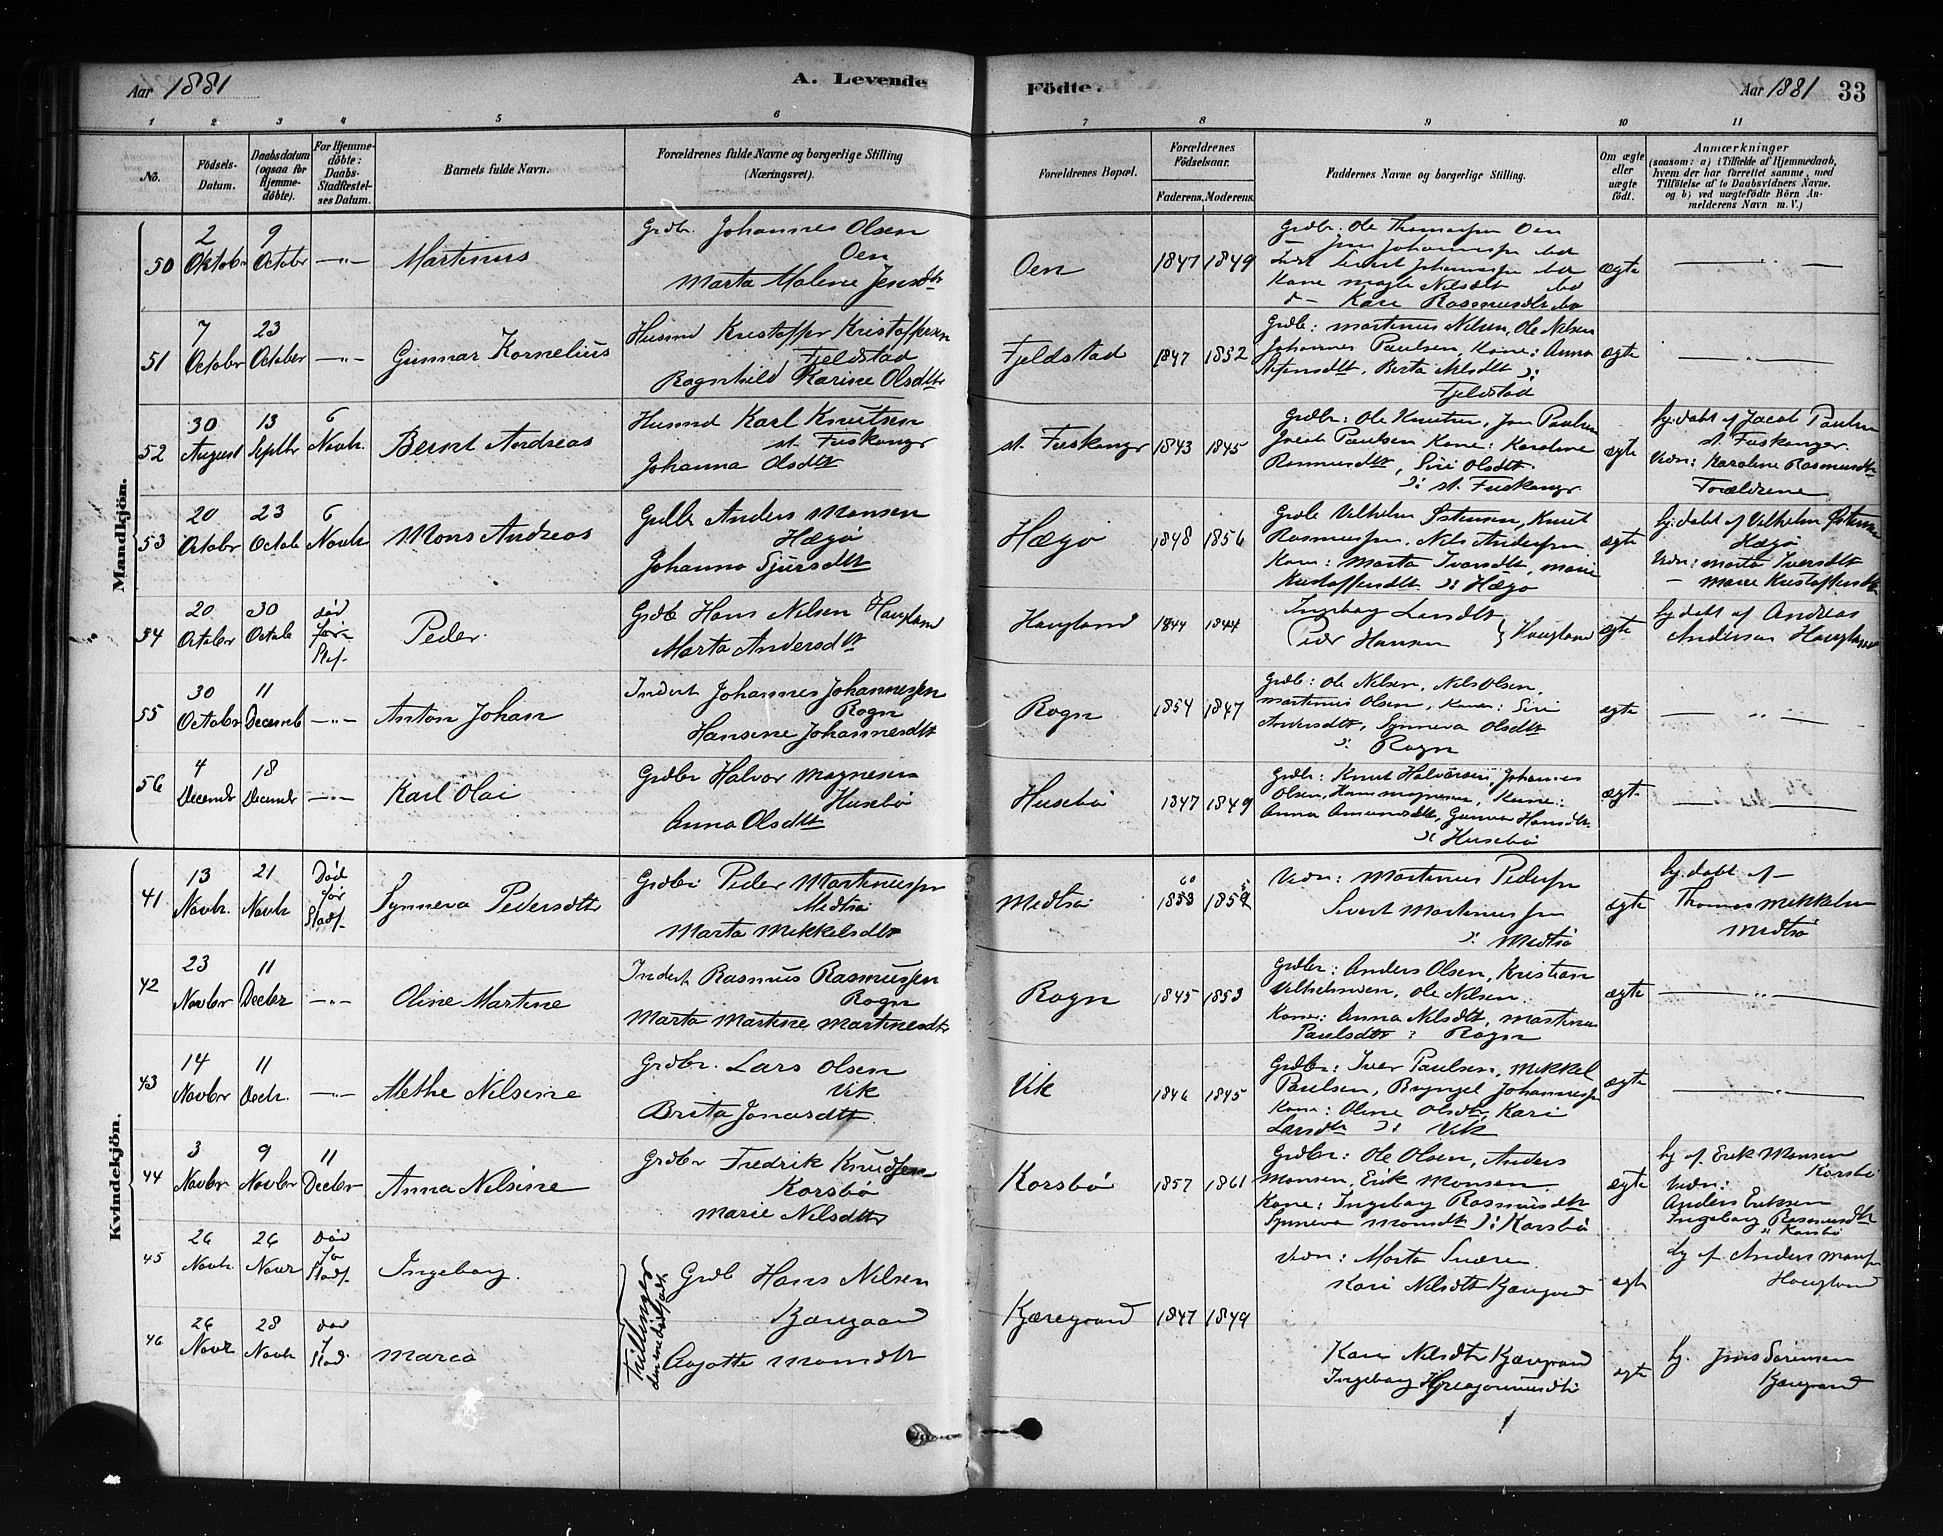 Aar 1881
A. Levende
Födte.
Aar 1881
33
1 2 3 4 5 6 7 8 9 10 11
No.
Födsels-Datum.
Daabsdatum (ogsaa for Hjemme-döbte).
For Hjemme-döbte: Daabs-Stadfæstel-ses Datum.
Barnets fulde Navn.
Forældrenes fulde Navne og borgerlige Stilling (Næringsvei).
Forældrenes Bopæl.
Forældrenes Födselsaar.
Faderens. Moderens.
Faddernes Navne og borgerlige Stilling.
Om ægte eller uægte födt.
Anmærkninger
(saasom: a) i Tilfælde af Hjemmedaab,
hvem der har forrettet samme, med
Tilföielse af to Daabsvidners Navne.
og b) ved uægtefödte Börn An-
melderens Navn m. V.)
Mandkjön.
50
2 Oktobr
9 Octobr
Martinus
Grdbr. Johannes Olsen
Oen
Marta Malene Jensdtr
Oen
1847 1849
Grdbr. Ole Thomassen Oen
ægte
51
7 October
23 October
Gunnar Kornelius
Husmd Kristoffer Kristoffersen
Fjeldstad
Ragnhild Karine Olsdtr
Fjeldstad
1847 1852
Grdb: Martinus Nilsen, Ole Nilsen
Johannes Paulsen, Kone: Anna
Berta Nilsdtr
Fjeldstad
ægte
52
30 August
13 Septbr
6 Novbr.
Bernt Andreas
Husmd Karl Knutsen
st. Fuskanger
Johanna Olsdtr
st. Fuskangr
1843 1845
Grdbr: Ole Knutsen, Jon Paulsen
Jacob Paulsen Kone: Karoline
Rasmusdtr, Siri Olsdtr
st. Fuskangr
ægte
hj. döbt af Jacob Paulsen
st. Fuskanger
Vidn: Karoline Rasmusdtr
Forældrene
53
20 Octobr
23 Octob
6 Novbr
Mons Andreas
Grdbr Anders Monsen
Hægö
Johanna Sjursdtr
Hægö
1848 1856
Grdb Vilhelm Istensen, Knut
Rasmussen, Nils Anderssen
Kone: Marta Ivarsdtr, Marie
Kristoffersdtr Hægö
ægte
hj. döbt af Vilhelm
Hægö
Vidn: Marta Iversdtr
Marie Kristoffersdtr
54
20 Octobr
30 Octob
död för Stf.
Peder.
Grdb Hans Nilsen Haugland
Marta Andersdtr
Haugland
1844 1844
Ingeborg Larsdtr
Peder Hansen } Haugland
ægte
hj. döbt af Andreas
Andersen Haugland
55
30 Octobr
11 Decemb
Anton Johan
Inderst Johannes Johannessen
Rogn
Hansine Johannesdtr
Rogn
1854 1847
Grdb: Ole Nilsen, Nils Olsen,
Martinus Olsen, Kone: Siri
Andersdtr, Synneva Olsdtr
Rogn
ægte
56
4 Decembr
18 Decembr
Karl Olai
Grdbr Halvor Magnesen
Husebö
Anna Olsdtr
Husebö
1847 1849
Grdbr: Knut Halvorsen, Johannes
Olsen, Hans Magnesen, Kone:
Anna Amundsdtr, Hansdtr.
Husebö
ægte
Kvindekjön.
41
13 Novbr.
21 Novbr
Död för Stadf.
Synneva Pedersdtr
Grdbr Peder Martinussen
Medtsö
Marta Mikkelsdtr
Medtsö
1853 60
1859
Vidn: Martinus Pedersen
Sivert Martinussen
Medtsö
ægte
hj. döbt af
Thomas Mikkelsen
Medtsö
42
23 Novbr
11 Decbr
Oline Martine
Inderst Rasmus Rasmussen
Rogn
Marta Martine Martinesdtr
Rogn
1845 1853
Grdbr: Anders Olsen, Kristian
Vilhelmsen, Ole Nilsen.
Kone: Anna Nilsdtr,
Paulsdtr Rogn
ægte
43
14 Novbr
11 Decbr.
Methe Nilsine
Grdbr. Lars Olsen
Vik
Brita Jonasdtr.
Vik
1846 1845
Grdbr: Iver Paulsen, Mikkel
Paulsen, Bryngel Johannessen
Kone: Oline Olsdtr, Kari
Larsdtr Vik
ægte
44
3 Novbr
9 Novbr
11 Decbr
Anna Nilsine
Grdbr Fredrik Knudsen
Korsbö
Marie Nilsdtr
Korsbö
1857 1861
Grdbr: Ole Olsen, Anders
Monsen, Erik Monsen.
Kone: Ingeborg Rasmusdtr
Synneva Monsdtr Korsbö
ægte
hj af Erik Monsen
Korsbö
Vidn:
Anders Eriksen
Ingeborg Rasmusdtr
Korsbö
45
26 Novbr.
26 Novbr
Död Stadf.
Ingeborg.
Tvillinger
Grdb Hans Nilsen
Kjæregaard
Kjæregaard
1847 1849
Vidn: Marta
Kari Nilsdtr Kjæregaard
ægte
hj af Anders
Haugland
46
26 Novbr
28 Novbr
död Stad
Marea
Aagotte Monsdtr
Kari Nilsdtr Kjæregaard
Ingeborg
ægte
hj. Jens Sörensen
Kjæregaard